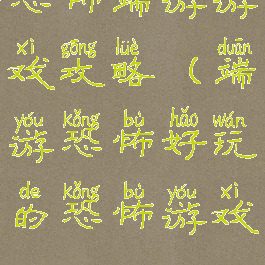 恐怖端游游
xì gōng lüè duān
戏攻略（端
yóu kǒng bù hǎo wán
游恐怖好玩
de kǒng bù yóu xì
的恐怖游戏